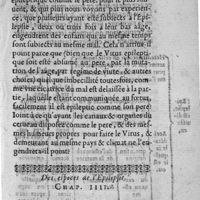 que, & qui plus nous voyons par experience,
que, puisque ayant esté subiects à l'Epi-
lepsie, deux ou trois fois à leur bas aage,
engendrent des enfans qui au mesme temps
sont subiects au mesme mal. Cela n'arriue
point parce que (bien que le Virus epilepti-
que soit esté absumé au pere, par la muta-
tion de l'aage, par regime de viure, & autres
choses) quelque imbecillité toutesfois, com-
me vne cicatrice du mal est delaissée à la par-
tie, laquelle estant communiquée au fœtus,
facilement le fils est epileptic comme son pe-
re, à ce qu'ayant les canaux & organes du
cerueau disposez comme le pere, & des mes-
mes humeurs propres pour faire le Virus, &
demeurant au mesme pays & climat ne l'en-
gendrera il point?
Des especes de l'Epilepsie.
CHAP. IIII.